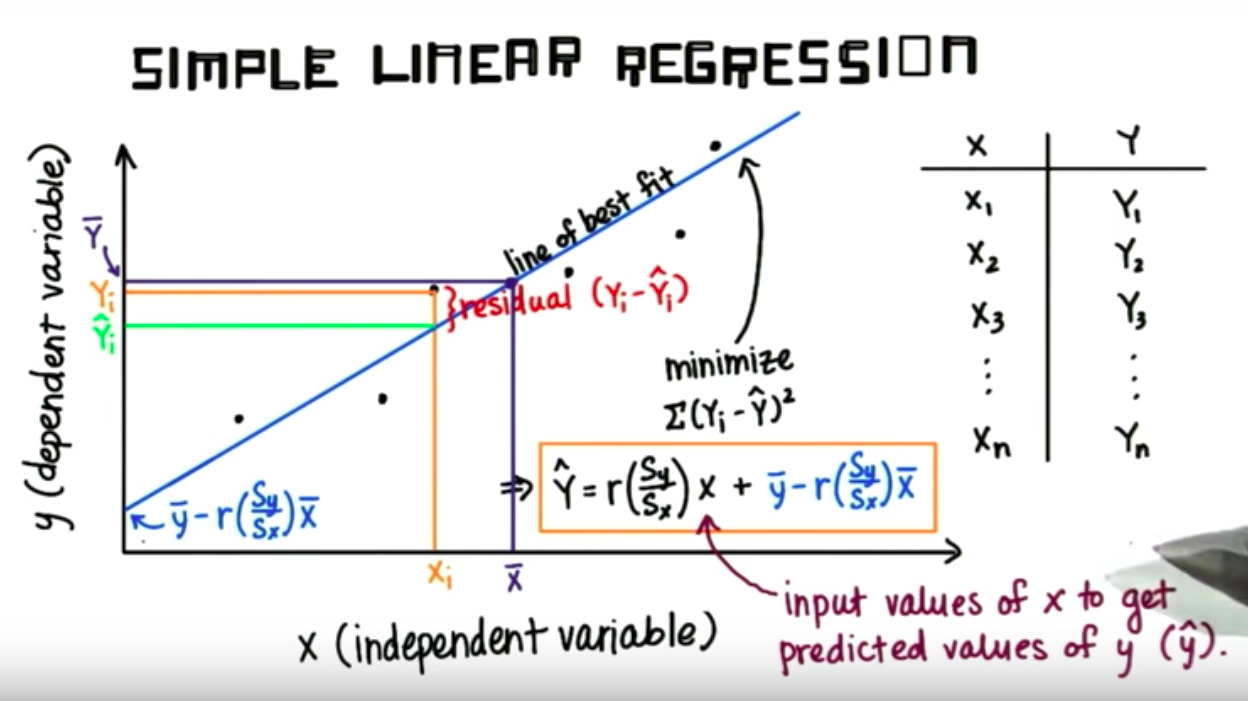 SIMPLE LINEAR REGRESSION
y (dependent variable)
Ȳ
Yᵢ
Ŷᵢ
line of best fit
}residual (Yᵢ-Ŷᵢ)
minimize
Σ(Yᵢ-Ŷ)²
⇒ Ŷ = r(Sy/Sx) x + ȳ - r(Sy/Sx) x̄
ȳ - r(Sy/Sx) x̄
xᵢ
x̄
x (independent variable)
input values of x to get
predicted values of y (ŷ).
X Y
x₁ Y₁
x₂ Y₂
x₃ Y₃
⋮ ⋮
xₙ Yₙ